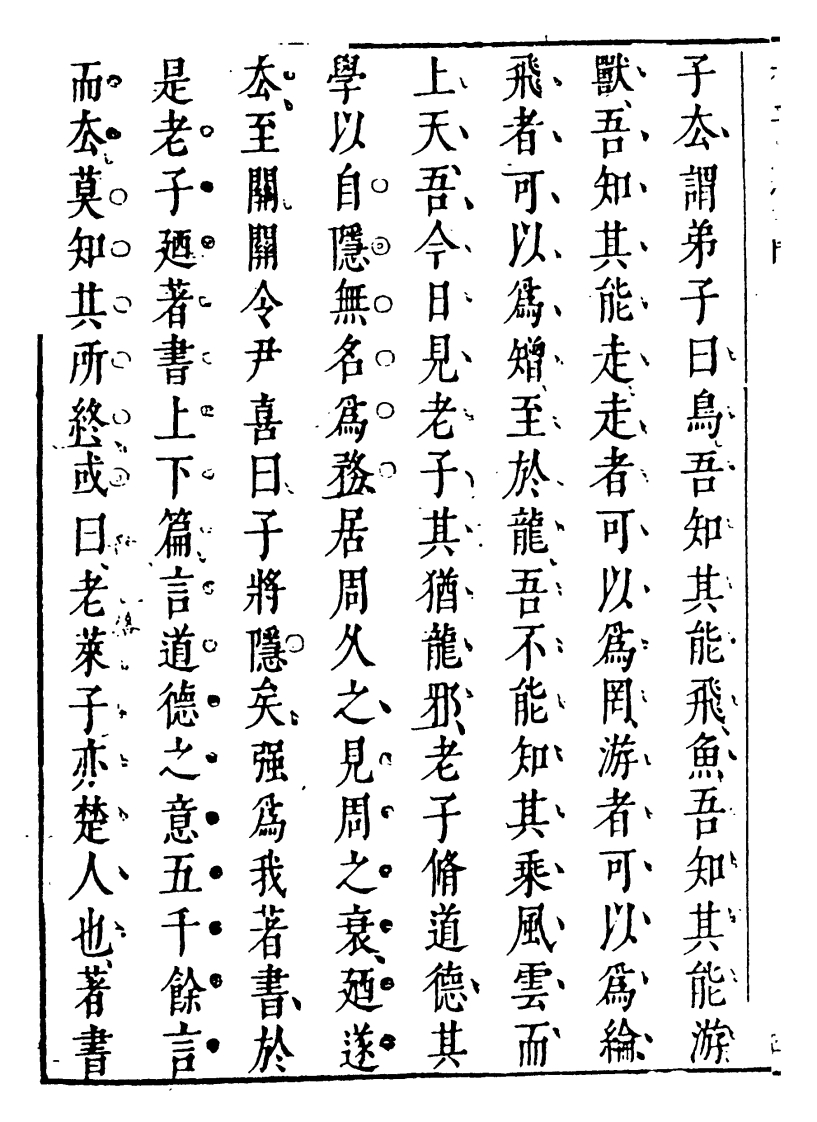 子厺謂弟子曰鳥吾知其能飛魚吾知其能游
獸吾知其能走走者可以爲罔游者可以爲綸
飛者可以爲矰至於龍吾不能知其乘風雲而
上天吾今日見老子其猶龍邪老子脩道德其
學以自隱無名爲務居周久之見周之衰廼遂
厺至關關令尹喜曰子將隱矣强爲我著書於
是老子廼著書上下篇言道德之意五千餘言
而厺莫知其所終或曰老萊子亦楚人也著書